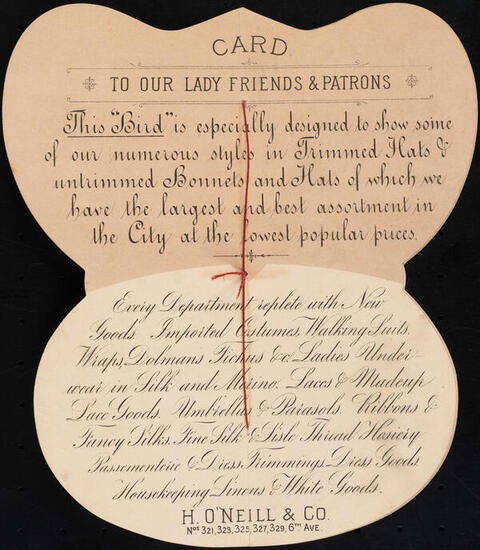 CARD
TO OUR LADY FRIENDS & PATRONS
This "Bird" is especially designed to show some
of our numerous styles in Trimmed Hats &
untrimmed Bonnets and Hats of which we
have the largest and best assortment in
the City at the lowest popular prices.
Every Department replete with New
Goods. Imported Costumes, Walking Suits,
Wraps, Dolmans Fichus &c. Ladies Under-
wear in Silk and Merino. Laces & Madeup
Lace Goods. Umbrellas & Parasols. Ribbons &
Fancy Silks. Fine Silk & Lisle Thread Hosiery
Passementerie & Dress Trimmings. Dress Goods.
Housekeeping Linens & White Goods.
H. O'NEILL & CO.
Nos. 321, 323, 325, 327, 329, 6TH AVE.